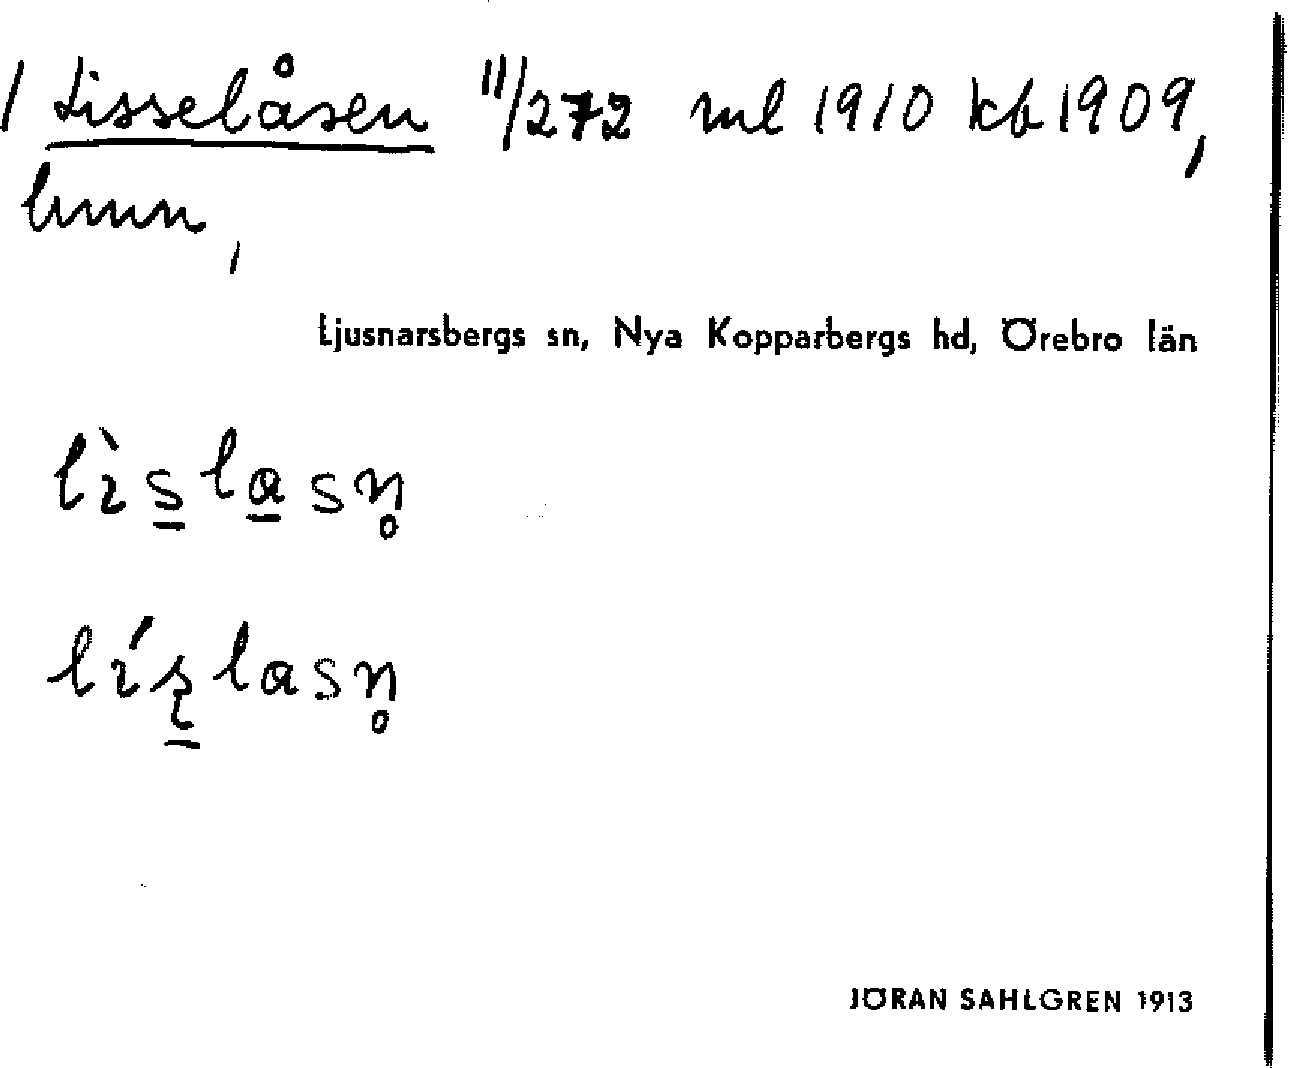 / Lisselåsen 11/272 ml 1910 kb 1909,
hmn,
Ljusnarsbergs sn, Nya Kopparbergs hd, Örebro län
lɩ̀s̲la̲sn̥
lɩ́ʂ̲lasn̥
JÖRAN SAHLGREN 1913